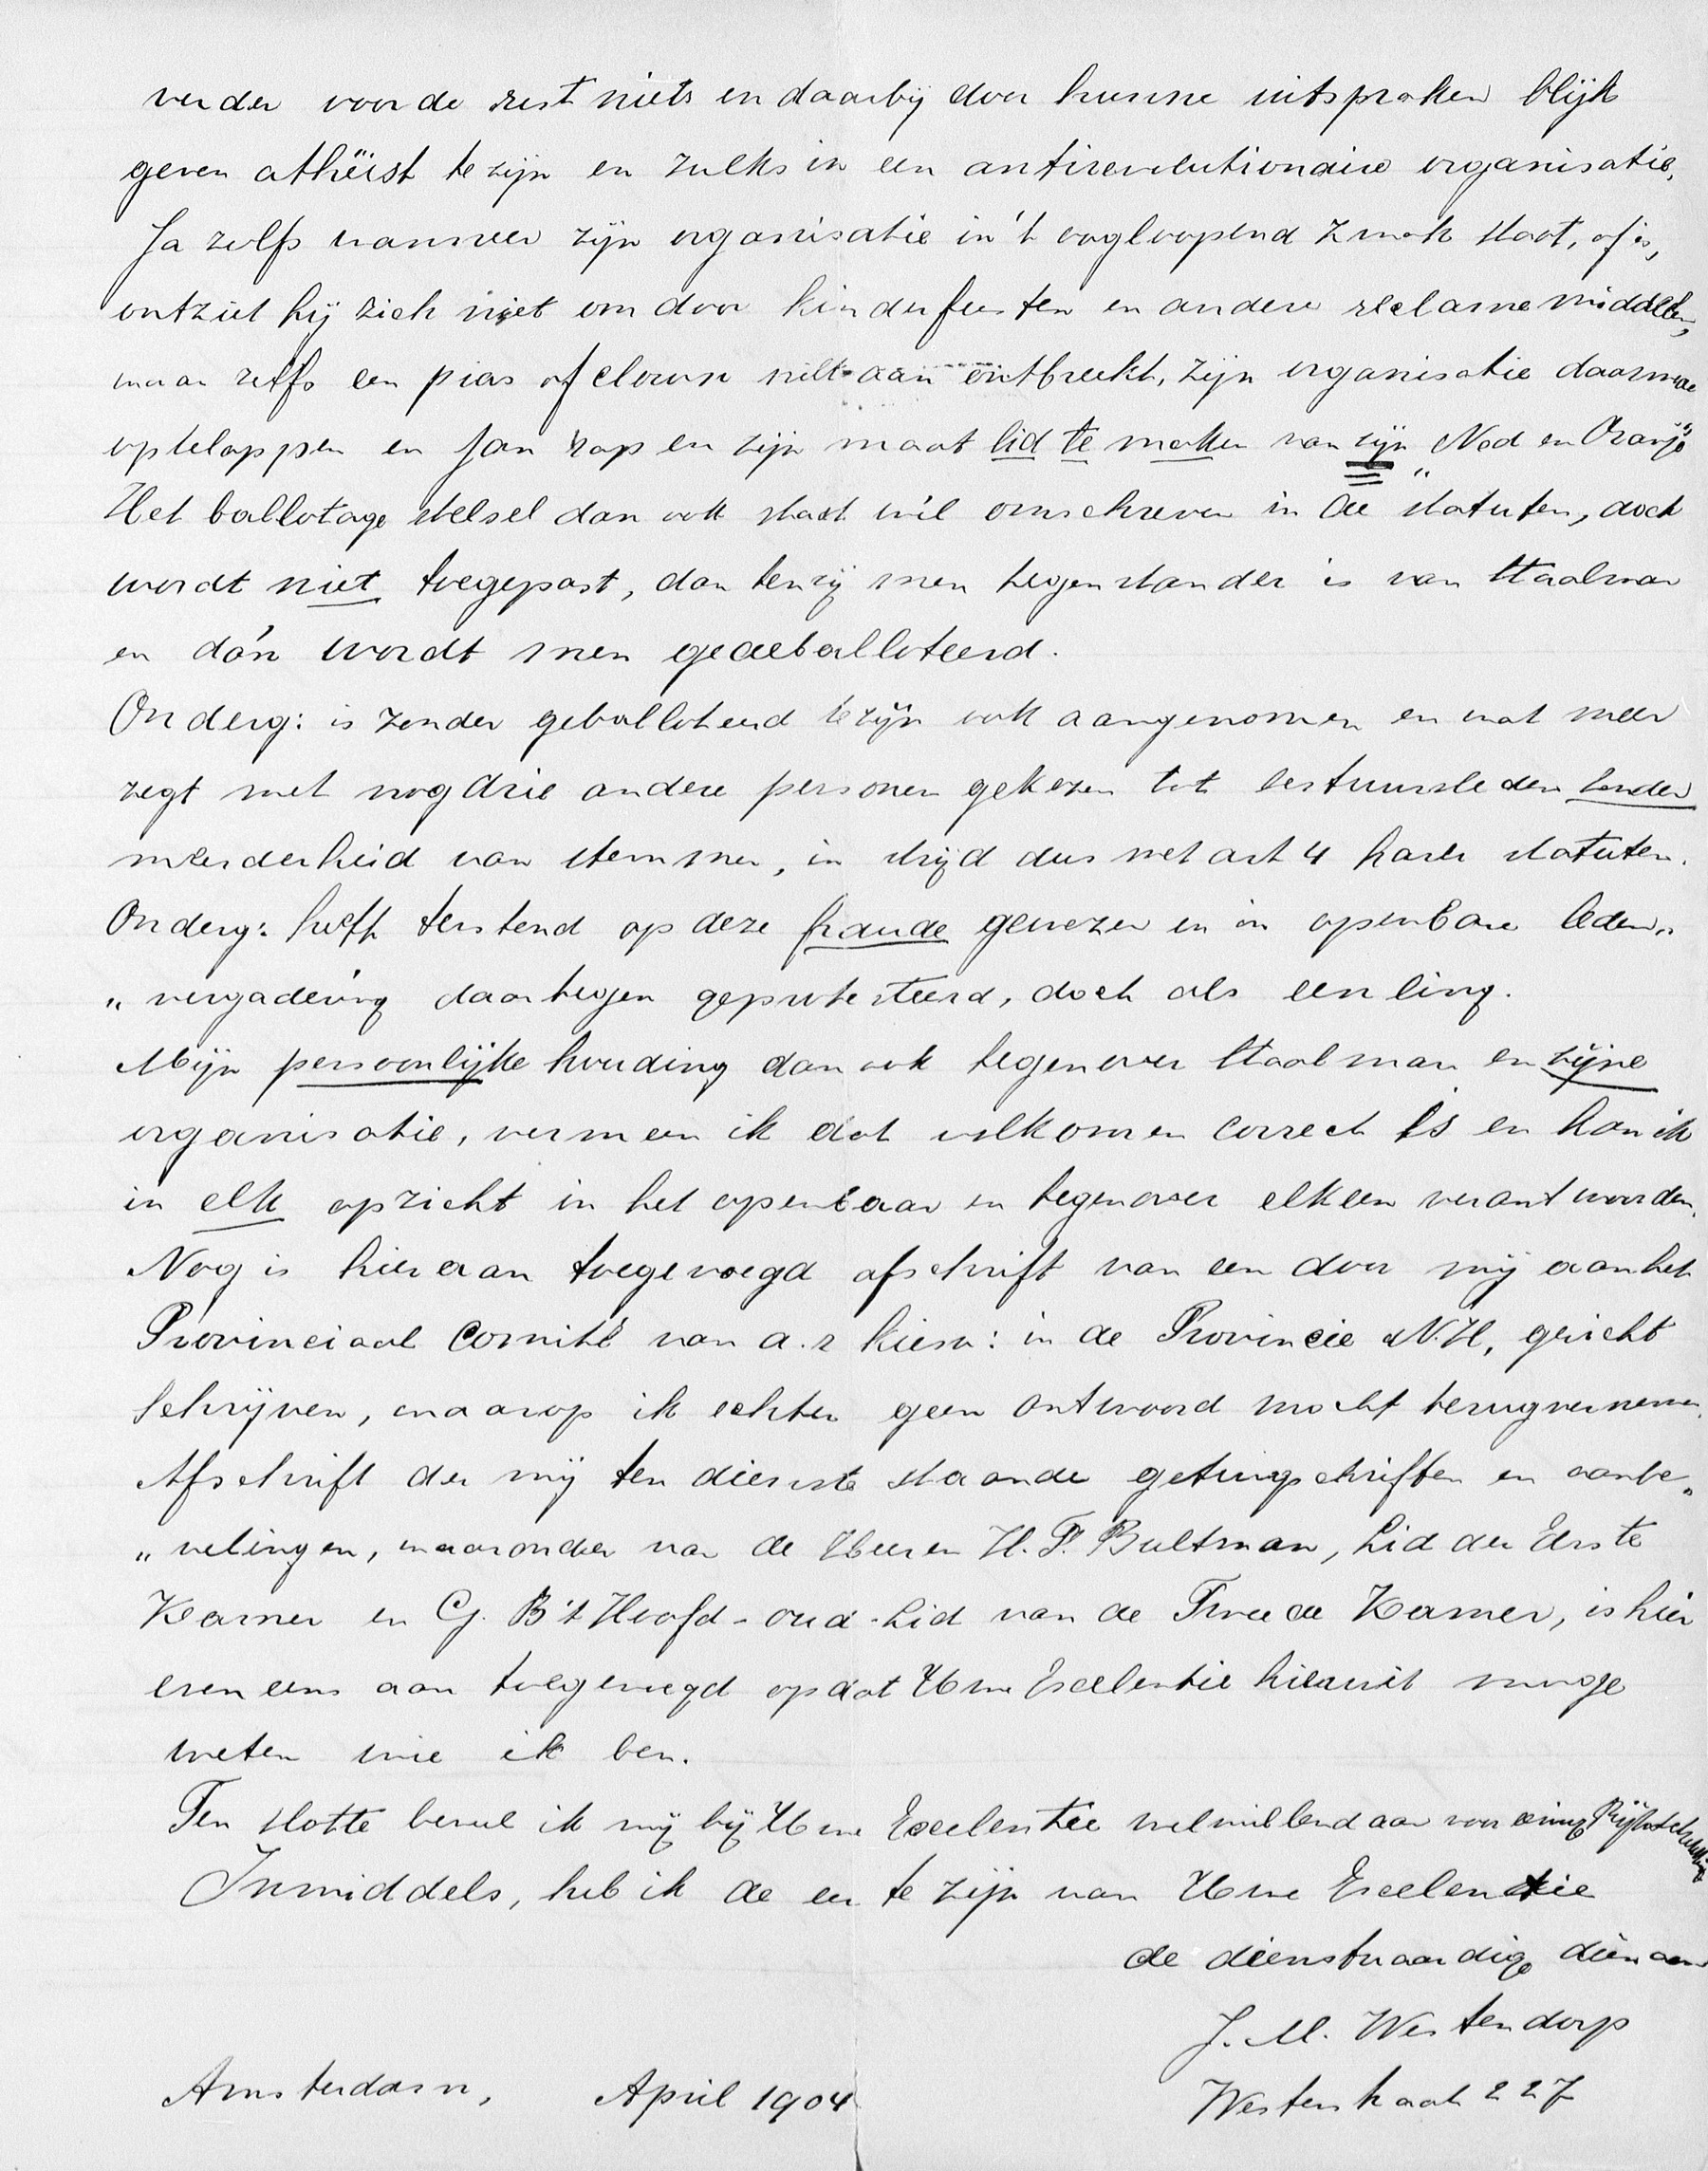 verder voor de rest niets en daarbij door hunne uitspraken blijk
geven athëist te zijn en zulks in een antirevolutionaire organisatie,
Ja zelfs wanneer zijn organisatie in 't oogloopend zwak staat, of is,
ontziet hij zich niet om door kinderfeesten en andere reclame middelen,
waar zelfs een pias of clown niet aan ontbreekt, zijn organisatie daarmee
optelappen en Jan rap en zijn maat lid te maken van zijn „Ned en Oranje"
Het ballotage stelsel dan ook staat wél omschreven in de statuten, doch
wordt niet toegepast, dan tenzij men tegenstander is van Staalman
en dán wordt men gedeballoteerd.
Onderg: is zonder geballoteerd te zijn ook aangenomen en wat meer
zegt met nog drie andere personen gekozen tot bestuursleden zonder
meerderheid van stemmen, in strijd dus met art 4 harer statuten.
Onderg: heeft terstond op deze fraude gewezen en in openbare leden„
„vergadering daartegen geprotesteerd, doch als eenling.
Mijn persoonlijke houding dan ook tegenover Staalman en zijne
organisatie, vermeen ik dat volkomen correct is en kan ik
in elk opzicht in het openbaar en tegenover elkeen verantwoorden.
Nog is hieraan toegevoegd afschrift van een door mij aan het
Provinciaal Comité van a.r kiesv: in de Provincie N.H, gericht
schrijven, waarop ik echter geen antwoord mocht terugvernemen.
Afschrift der mij ten dienste staande getuigschriften en aanbe„
„velingen, waaronder van de Heeren H. F. Bultman, Lid der Eerste
Kamer en G. B 't Hoofd - oud-Lid van de Tweede Kamer, is hier
eveneens aan toegevoegd opdat Uwe Excelentie hieruit moge
weten wie ik ben.
Ten slotte beveel ik mij bij Uwe Excelentie welwillend aan voor eenige Rijksbetrekking
Inmiddels, heb ik de eer te zijn van Uwe Excelentie
de dienstvaardige dienaar
J. M. Westendorp
Westerstraat 227
Amsterdam, April 1904